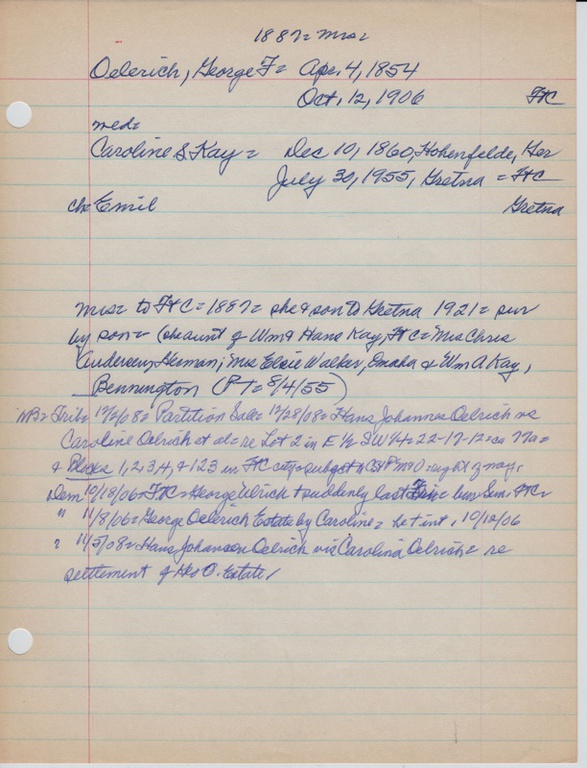 1887= Mrs=
Oelerich, George F= Apr. 4, 1854
Oct. 12, 1906 FtC
med=
Caroline S. Kay= Dec 10, 1860, Hohenfelde, Ger
July 30, 1955, Gretna = FtC
ch= Emil Gretna
Mrs= to FtC= 1887= she & son to Gretna 1921= sur
by son= (she aunt of Wm & Hans Kay, FtC= Mrs Chris
Andersen, Herman; Mrs Elsie Walker, Omaha & Wm A Kay,
Bennington (PT= 8/4/55)
NB= Trib= 12/2/08= Partition Sale= 12/28/08= Hans Johannes Oelrich vs
Caroline Oelrich et al= re Lot 2 in E ½= SW ¼= 22-17-12= 77a=
& Blocks 1, 2, 3, 4, & 123 in FtC city= subject to right of way.
Dem 10/18/06= FtC= George Ulrich + suddenly last = bur Sun. FtC=
" 11/8/06= George Oelerich Estate by Caroline= he + int, 10/12/06
" 11/5/08= Hans Johansen Oelrich vs Carolina Oelrich= re
settlement of Geo O. Estate/